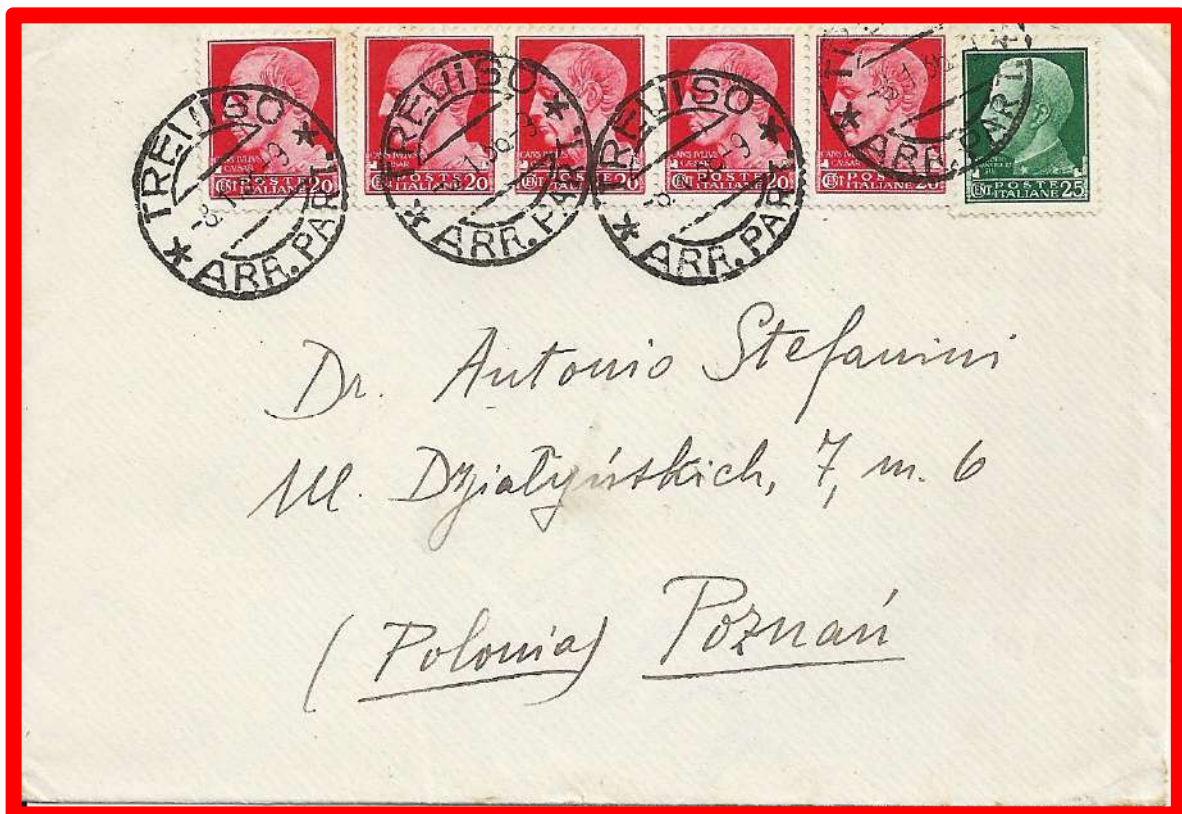 CAIVS IVLIVS CAESAR
CENT POSTE ITALIANE 20
CENT POSTE ITALIANE 20
CENT POSTE ITALIANE 20
CENT POSTE ITALIANE 20
CENT POSTE ITALIANE 20
CENT POSTE ITALIANE 25
TREVISO
ARR. PART.
TREVISO
ARR. PART.
TREVISO
ARR. PART.
ARR. PART.
Dr. Antonio Stefanini
Ul. Działyńskich, 7, m. 6
(Polonia) Poznań